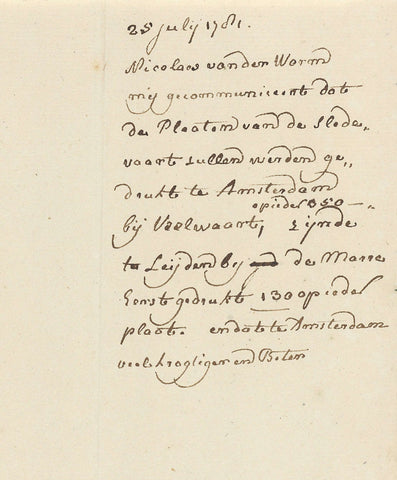 25 july 1781.
Nicolaas van der Worm
mij gecommuniceert dat
de Plaaten van de Slede„
vaart zullen werden ge„
drukt te Amsterdam
op ieder 350 —„
bij Veelwaart, zijnde
te Leijden bij de Marre
Eerst gedrukt 130 op ieder
plaat. en dat te Amsterdam
veel kragtiger en Beter